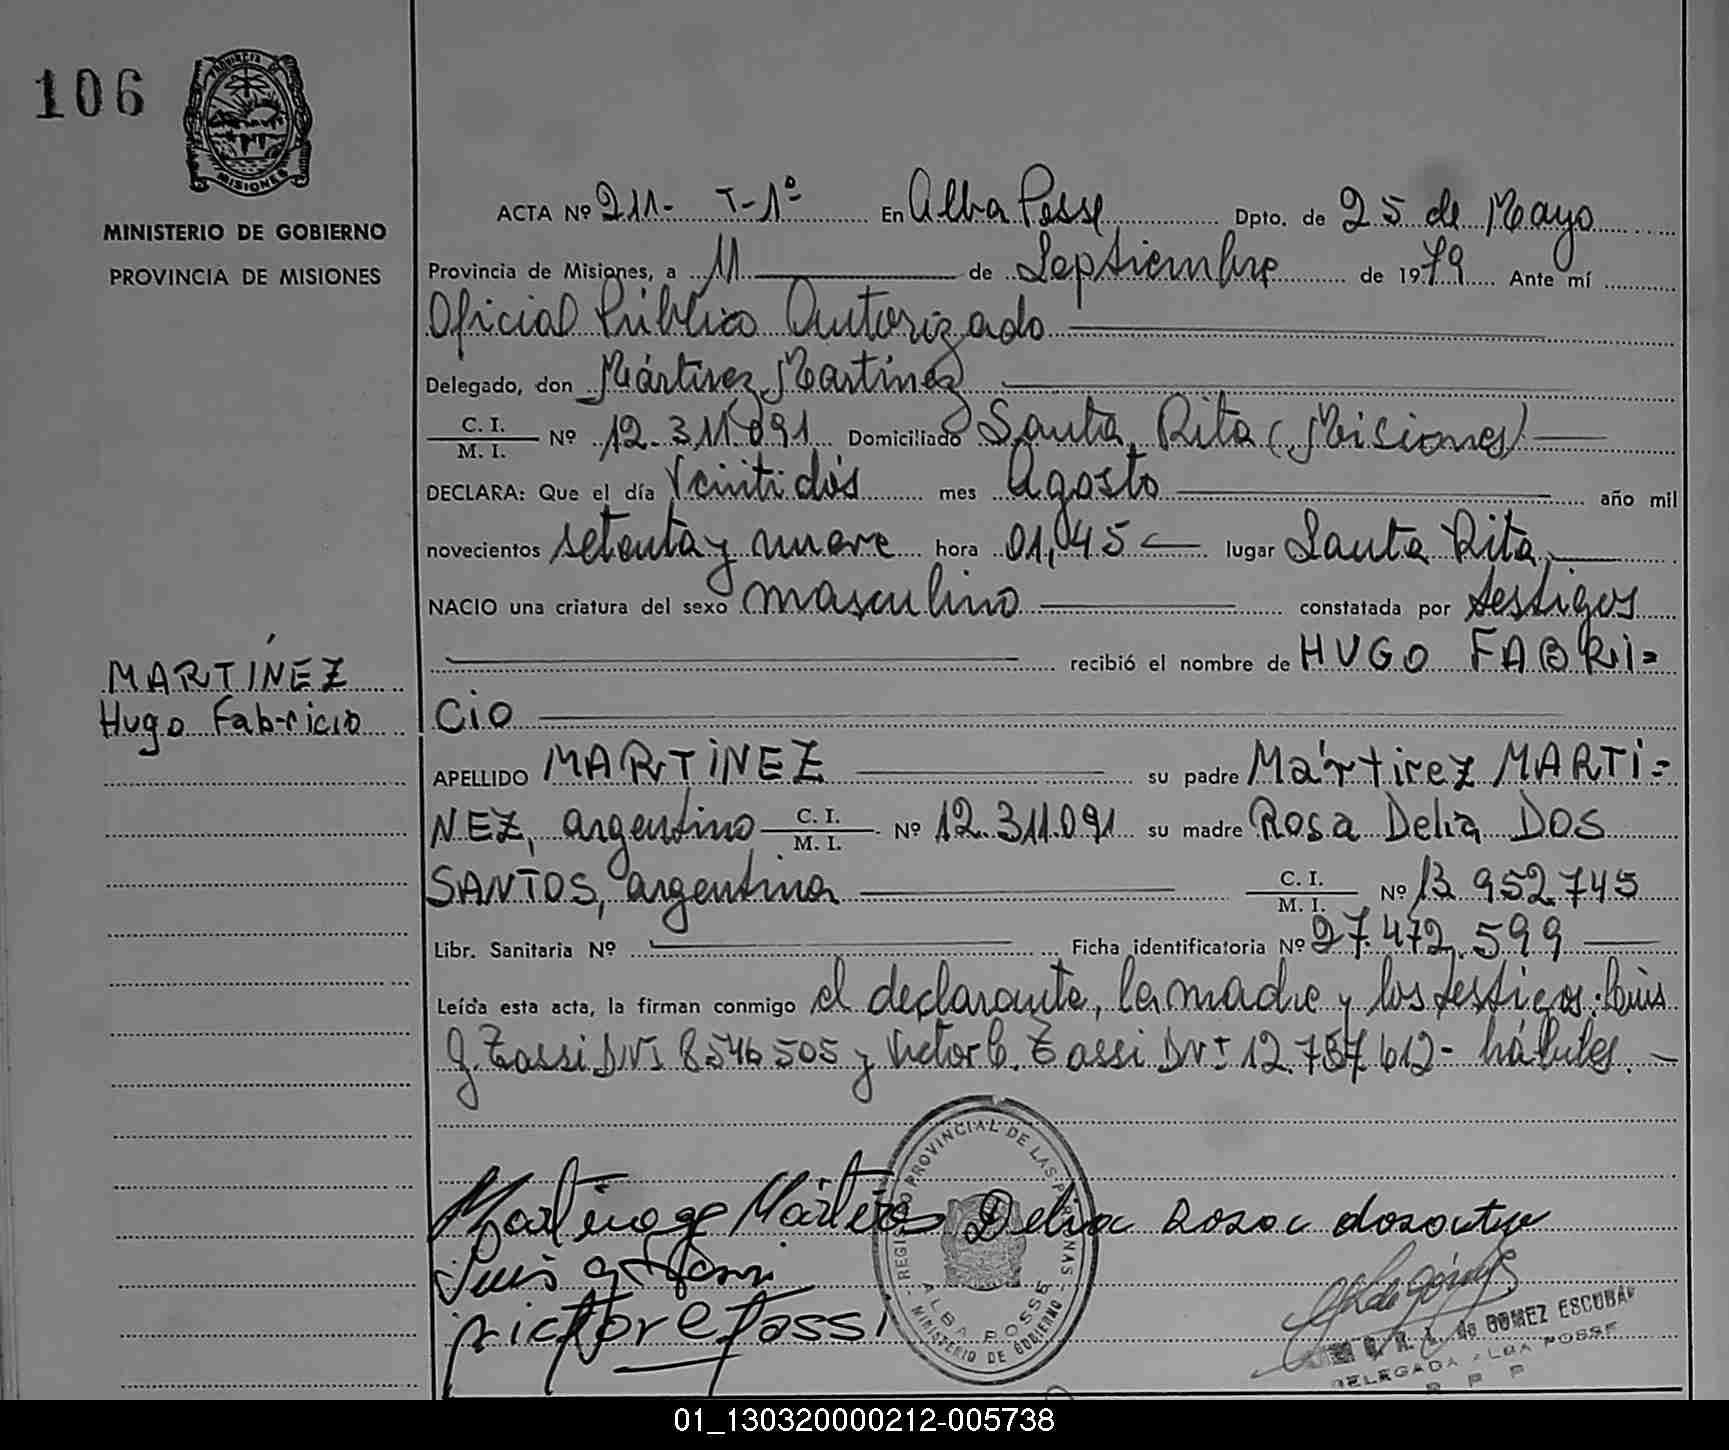 106
PROVINCIA DE
MISIONES
MINISTERIO DE GOBIERNO
PROVINCIA DE MISIONES
MARTÍNEZ
Hugo Fabricio
ACTA Nº 211- T-1º En Alba Posse Dpto. de 25 de Mayo
Provincia de Misiones, a 11 de Septiembre de 1979 Ante mí
Oficial Público Autorizado
Delegado, don Mártirez Martínez
C. I.
M. I. Nº 12.311.091 Domiciliado Santa Rita (Misiones)
DECLARA: Que el día Veinti dós mes Agosto año mil
novecientos setenta y nueve hora 01,45 lugar Santa Rita,
NACIO una criatura del sexo masculino constatada por testigos
recibió el nombre de HUGO FABRI=
CIO
APELLIDO MARTÍNEZ su padre Mártirez MARTÍ=
NEZ, argentino C. I. M. I. Nº 12.311.091 su madre Rosa Delia DOS
SANTOS, argentina C. I. M. I. Nº 13 952.745
Libr. Sanitaria Nº Ficha identificatoria Nº 27.472.599
Leída esta acta, la firman conmigo el declarante, la madre y los testigos: Luis
G. Zassi DNI 8546505 y Victor E. Zassi DNI 12.757.612- hábiles.
REGISTRO PROVINCIAL DE LAS PERSONAS
ALBA POSSE
MINISTERIO DE GOBIERNO
Luis
Victor E
de GOMEZ ESCOBAR
DELEGADA ALBA POSSE
R P P
01_130320000212-005738